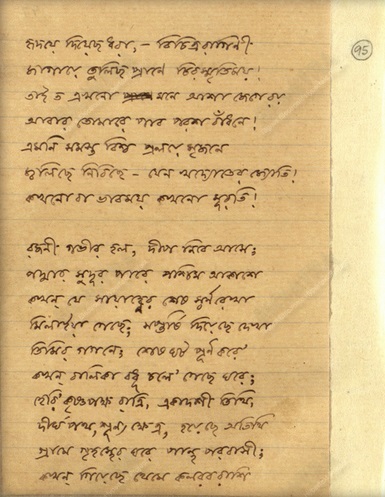 হৃদয়ে দিয়েছ ধরা,— বিচিত্র রাগিণী
জাগায়ে তুলিছ প্রাণে চিরস্মৃতিময়!
তাই ত এখনো মনে আশা জেগে রয়
আবার তোমারে পাব পরশ বাঁধনে!
এমনি সমস্ত বিশ্ব প্রলয়ে সৃজনে
জ্বলিছে নিবিছে— যেন খদ্যোতের জ্যোতি!
কখনো বা ভাবময় কখনো মুরতি!
রজনী গভীর হল, দীপ নিবে আসে;
পদ্মার সুদূর পারে পশ্চিম আকাশে
কখন যে সায়াহ্নের শেষ স্বর্ণরেখা
মিলাইয়া গেছে; সপ্তর্ষি দিয়েছে দেখা
তিমির গগনে; শেষ ঘট পূর্ণ করে'
কখন বালিকা বধূ চলে' গেছে ঘরে;
হেরি কৃষ্ণপক্ষ রাত্রি, একাদশী তিথি,
দীর্ঘ পথ, শূন্য ক্ষেত্র, হয়েছে অতিথি
গ্রামে গৃহস্থের ঘরে পান্থ পরবাসী;
কখন গিয়েছে থেমে কলরব রাশি
95